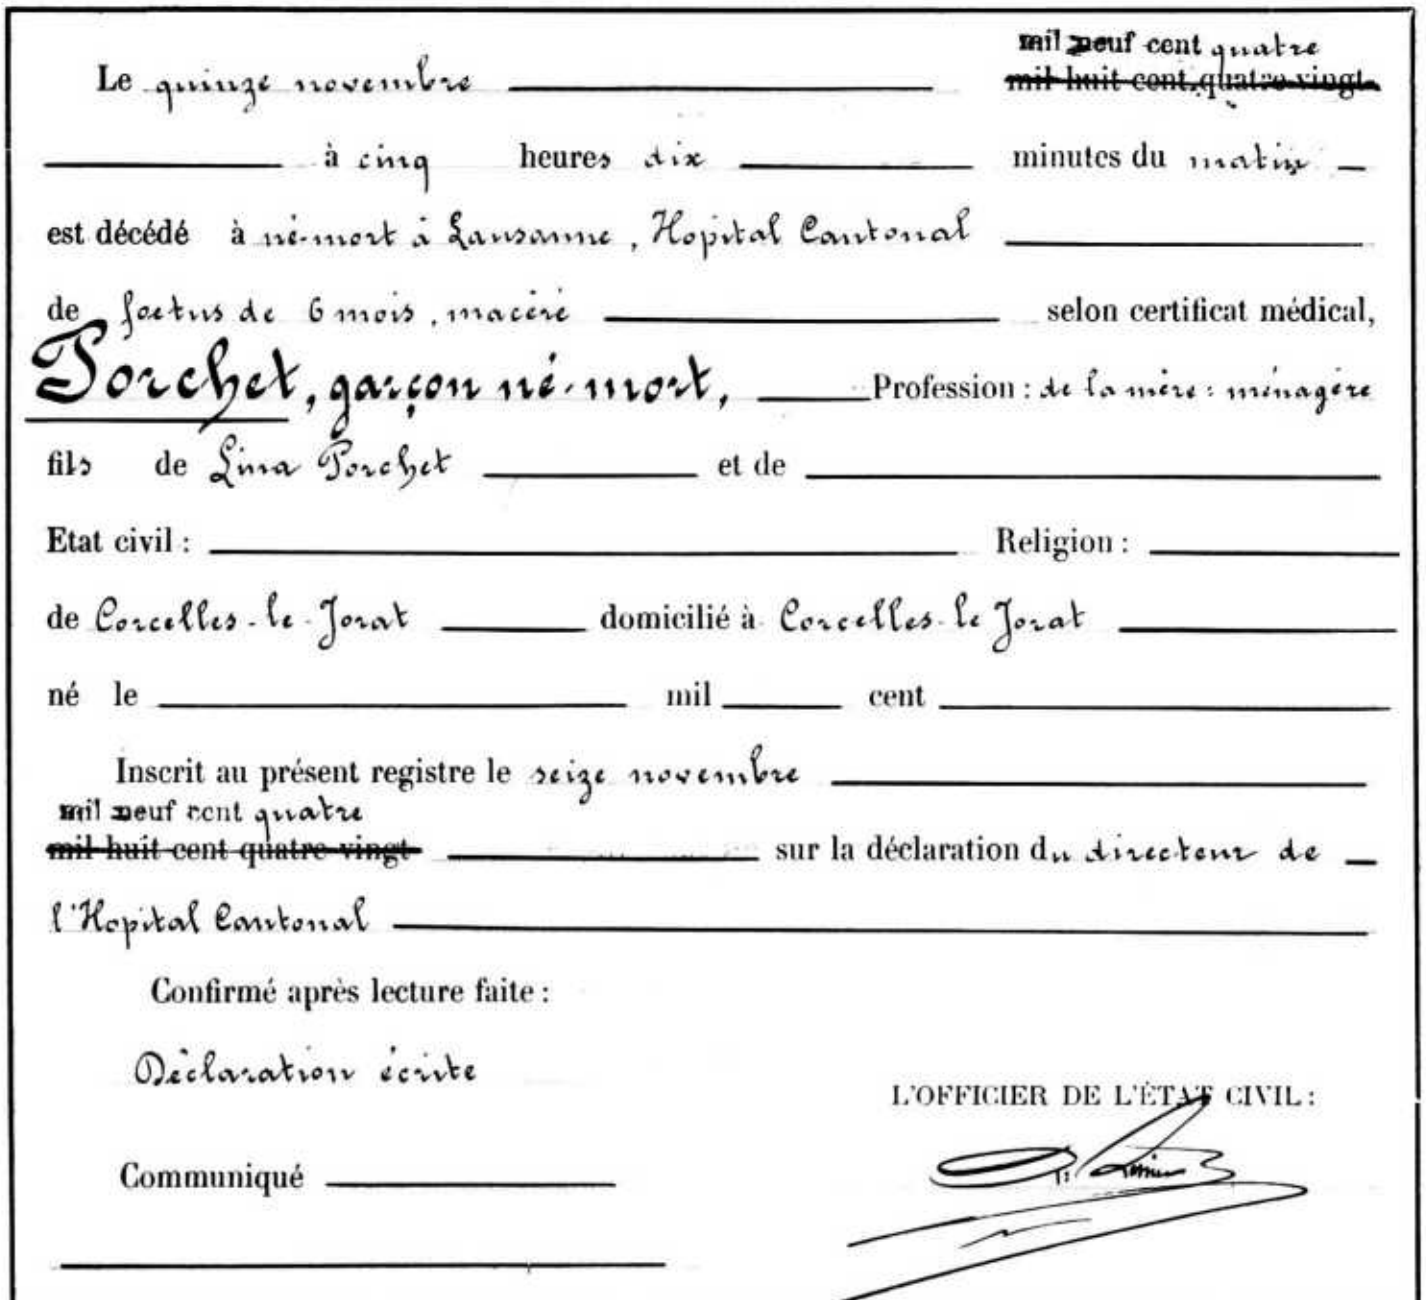 mil neuf cent quatre
Le quinze novembre mil huit cent quatre-vingt
à cinq heures dix minutes du matin
est décédé à né-mort à Lausanne, Hopital Cantonal
de foetus de 6 mois, macéré selon certificat médical,
Porchet, garçon né-mort, Profession : de la mère : ménagère
fils de Lina Porchet et de
Etat civil : Religion :
de Corcelles-le-Jorat domicilié à Corcelles-le-Jorat
né le mil cent
Inscrit au présent registre le seize novembre
mil neuf cent quatre
mil huit cent quatre-vingt sur la déclaration du directeur de
l'Hopital Cantonal
Confirmé après lecture faite :
Déclaration écrite
L'OFFICIER DE L'ÉTAT CIVIL :
Communiqué